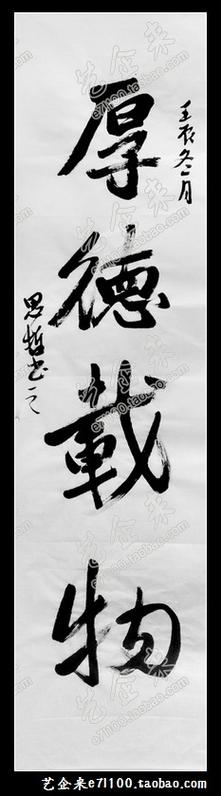 壬辰冬月
厚德載物
思哲書之
艺企来e71100.taobao.com